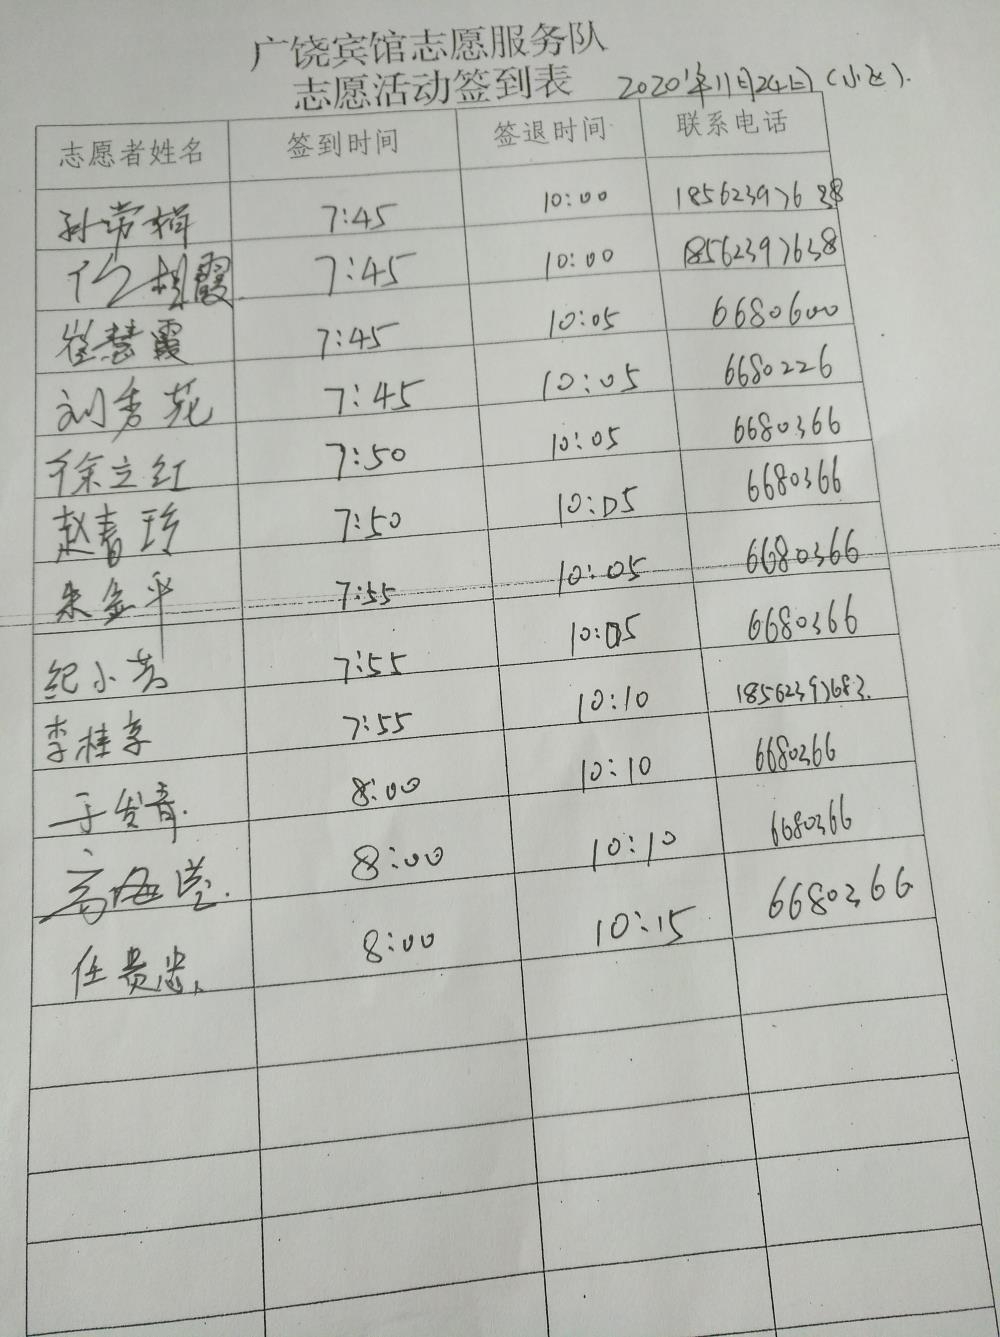 广饶宾馆志愿服务队
志愿活动签到表 2020年11月24日(小区).
志愿者姓名 签到时间 签退时间 联系电话
孙常辑 7:45 10:00 18562397638
7:45 10:00 18562397638
崔慧霞 7:45 10:05 6680600
刘秀苑 7:45 10:05 6680226
徐立红 7:50 10:05 6680366
赵春玲 7:50 10:05 6680366
朱金平 7:55 10:05 6680366
纪小芳 7:55 10:05 6680366
李桂亭 7:55 10:10 18562397683.
于发青. 8:00 10:10 6680366
高海莹. 8:00 10:10 6680366
任贵忠、 8:00 10:15 6680366